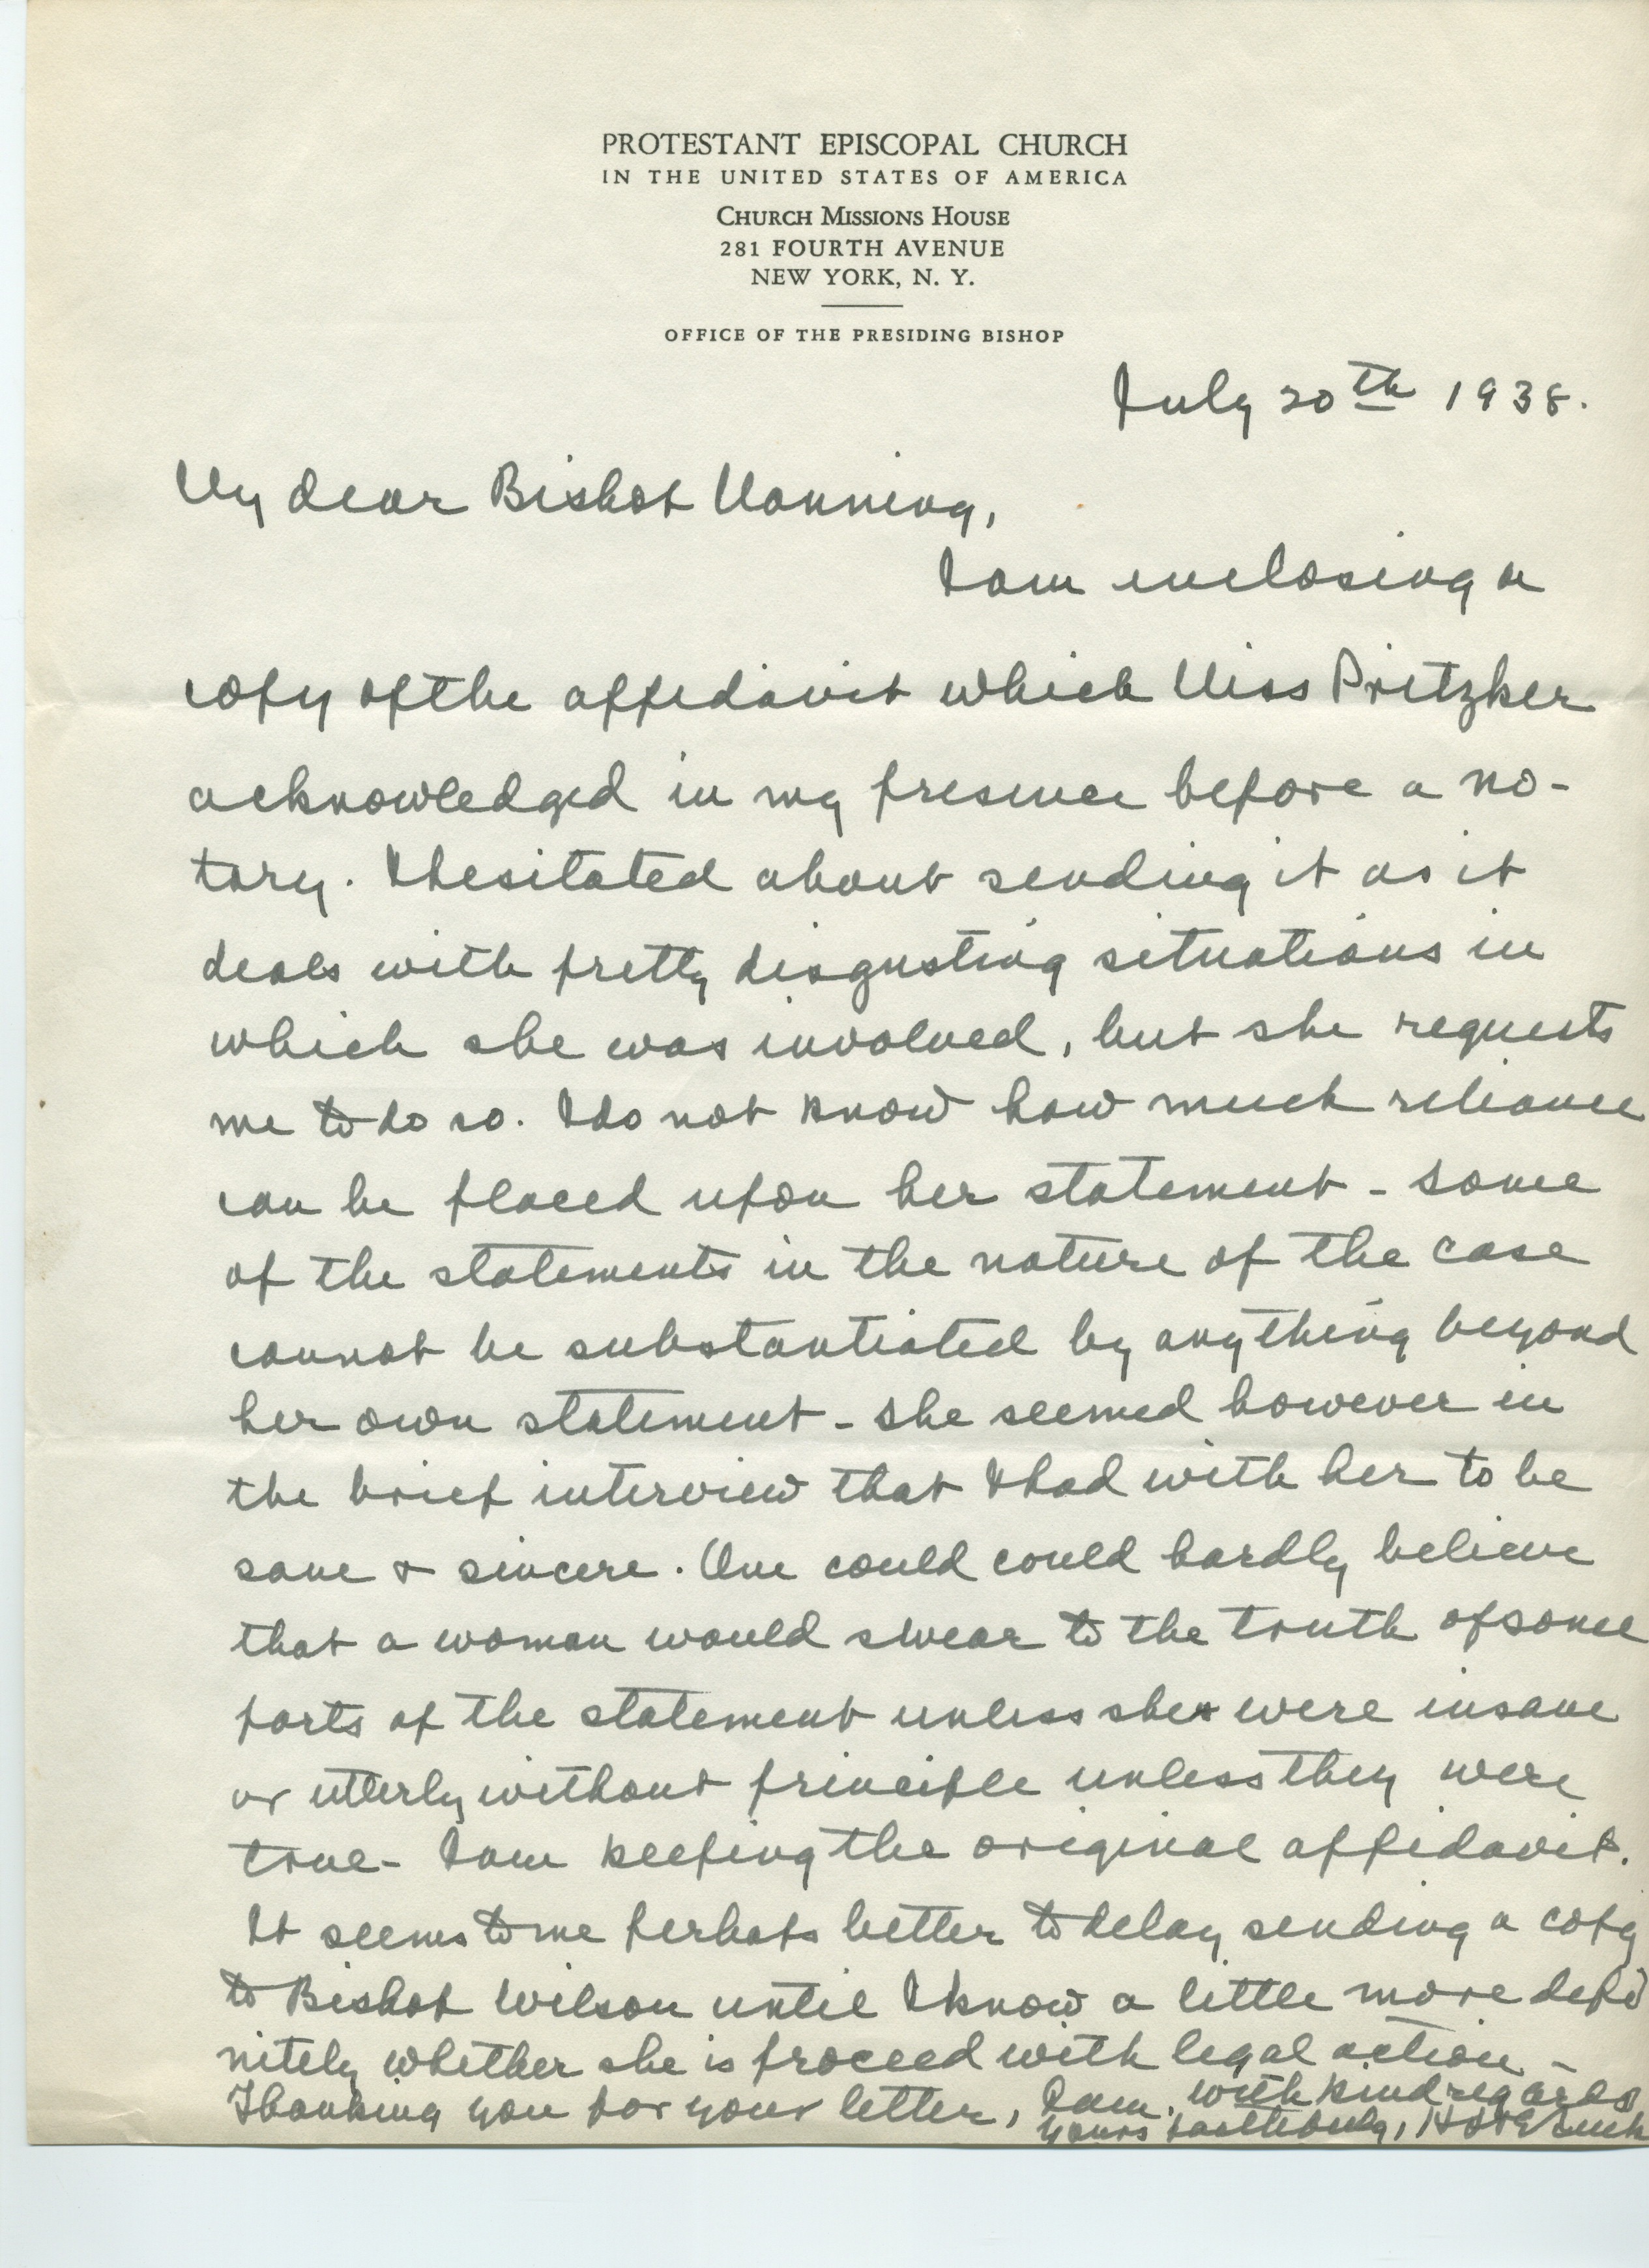 PROTESTANT EPISCOPAL CHURCH
IN THE UNITED STATES OF AMERICA
CHURCH MISSIONS HOUSE
281 FOURTH AVENUE
NEW YORK, N. Y.
OFFICE OF THE PRESIDING BISHOP
July 20th 1938.
My dear Bishop Manning,
I am enclosing a
copy of the affidavit which Miss Pritzker
acknowledged in my presence before a no-
tary. I hesitated about sending it as it
deals with pretty disgusting situations in
which she was involved, but she requests
me to do so. I do not know how much reliance
can be placed upon her statement - some
of the statements in the nature of the case
cannot be substantiated by anything beyond
her own statement - She seemed however in
the brief interview that I had with her to be
sane & sincere. One could could hardly believe
that a woman would swear to the truth of some
parts of the statement unless she were insane
or utterly without principle unless they were
true - I am keeping the original affidavit.
It seems to me perhaps better to delay sending a copy
to Bishop Wilson until I know a little more defi
nitely whether she is proceed with legal action -
Thanking you for your letter, I am, with kind regards
yours faithfully,